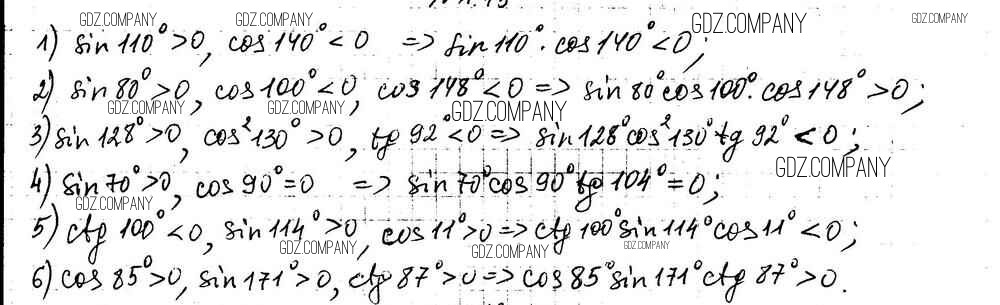 GDZ.COMPANY GDZ.COMPANY GDZ.COMPANY GDZ.COMPANY
1) sin 110° > 0, cos 140° < 0 => sin 110° · cos 140° < 0;
2) sin 80° > 0, cos 100° < 0, cos 148° < 0 => sin 80° cos 100° · cos 148° > 0;
GDZ.COMPANY GDZ.COMPANY GDZ.COMPANY
3) sin 128° > 0, cos² 130° > 0, tg 92° < 0 => sin 128° cos² 130° tg 92° < 0;
GDZ.COMPANY
4) sin 70° > 0, cos 90° = 0 => sin 70° cos 90° tg 104° = 0;
GDZ.COMPANY
5) ctg 100° < 0, sin 114° > 0, cos 11° > 0 => ctg 100° sin 114° cos 11° < 0;
GDZ.COMPANY GDZ.COMPANY GDZ.COMPANY
6) cos 85° > 0, sin 171° > 0, ctg 87° > 0 => cos 85° sin 171° ctg 87° > 0.